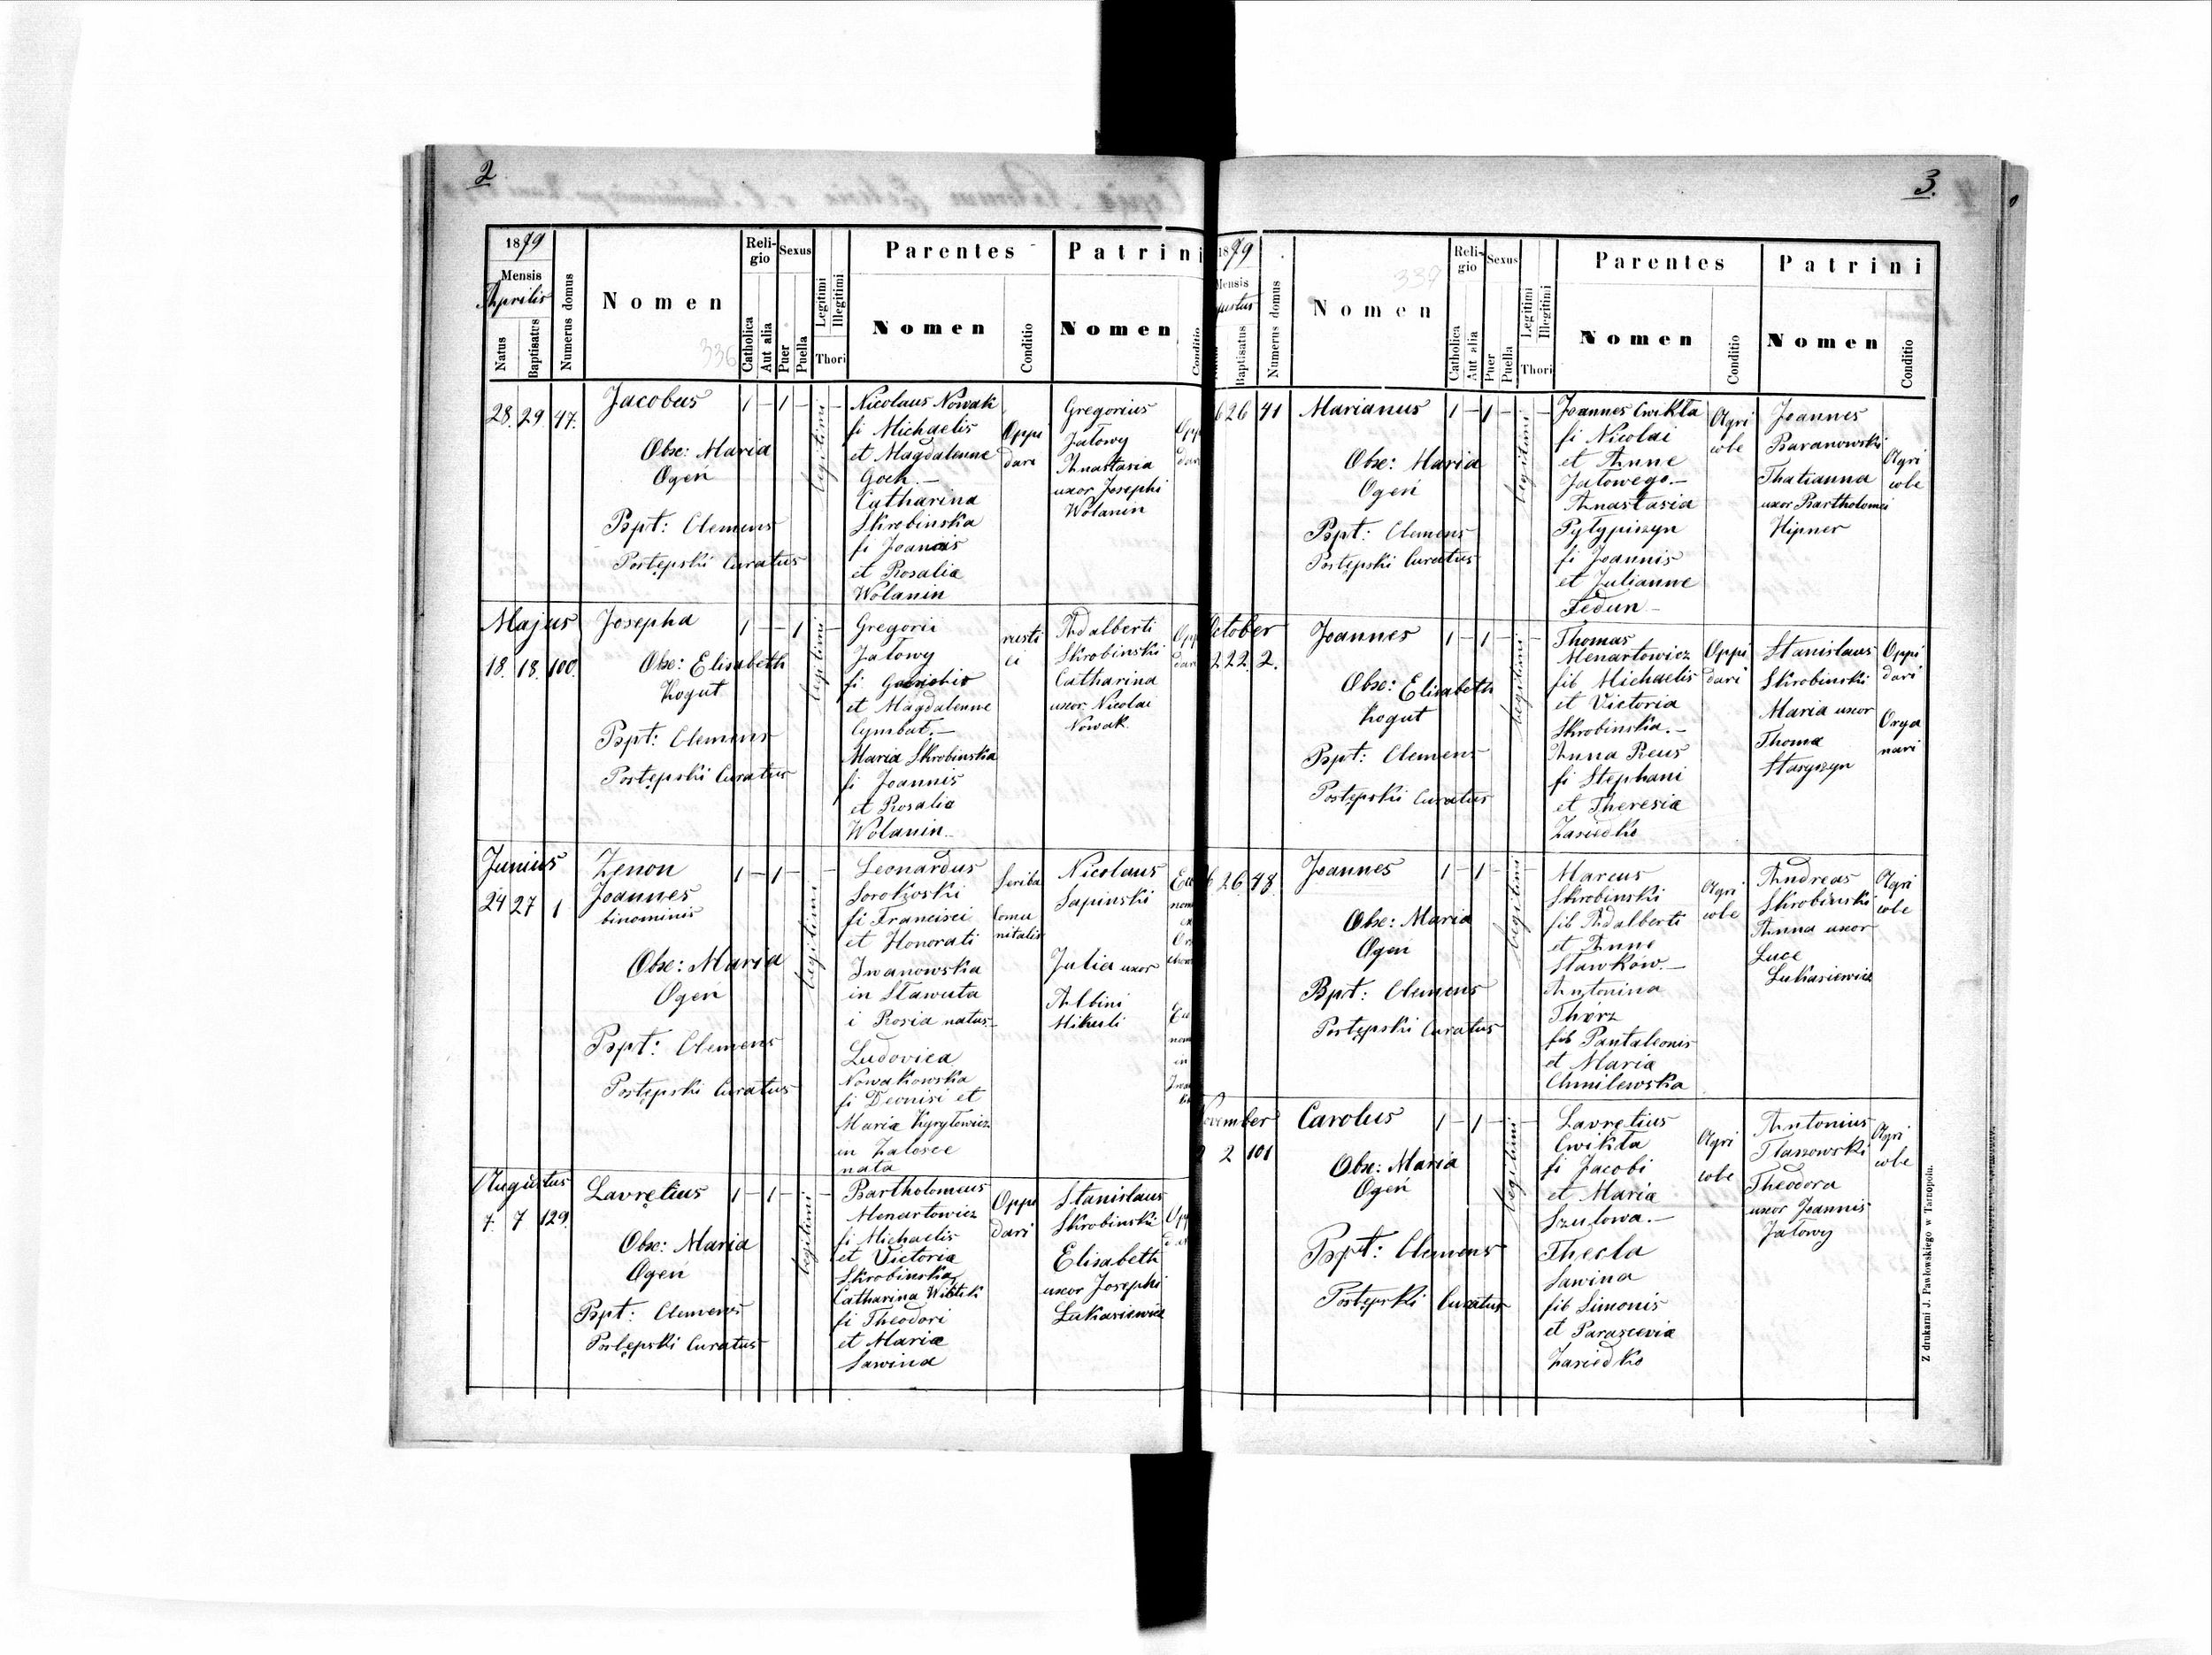 2
1879
Mensis
Aprilis
Natus
Baptisatus
Numerus domus
Nomen
336
Religio
Catholica
Aut alia
Sexus
Puer
Puella
Legitimi
Illegitimi
Thori
Parentes
Nomen
Conditio
Patrini
Nomen
Conditio
28. 29 47.
Jacobus
1 - 1 - legitimi -
Obse: Maria
Ogeń
Bpt: Clemens
Postępski Curatus
Nicolaus Nowak
fi Michaelis
et Magdalenne
Goch.-
Catharina
Skrobinska
fi Joannis
et Rosalia
Wolanin
Oppi
dari
Gregorius
Jałowy
Anastasia
uxor Josephi
Wolanin
Majus
18. 18. 100.
Josepha
1 - - 1 legitimi
Obse: Elisabeth
Kogut
Bpt: Clemens
Postępski Curatus
Gregorii
Jałowy
fi
et Magdalenne
Cymbał.-
Maria Skrobinska
fi Joannis
et Rosalia
Wolanin.
rusti
ci
Adalberti
Skrobinski
Catharina
uxor Nicolai
Nowak
Junius
24 27 1
Zenon
Joannes
binominis
1 - 1 - legitimi -
Obse: Maria
Ogeń
Bpt: Clemens
Postępski Curatus
Leonardus
fi Francisci
et Honorati
Iwanowska
in Sławuta
i Rosia natus-
Ludovica
Nowakowska
fi Deonisi et
Maria Kyryłowicz
in Załosce
nata
Scriba
Comu
nitalis
Nicolaus
Sapinski
Julia uxor
Albini
Mikuli
Augustus
7. 7 129.
Lavrętius
1 - 1 - legitimi -
Obse: Maria
Ogeń
Bpt: Clemens
Postępski Curatus
Bartholomeus
Menartowicz
fi Michaelis
et Victoria
Skrobinska
Catharina
fi Theodori
et Maria
Sawina
Oppi
dari
Stanislaus
Skrobinski
Elisabeth
uxor Josephi
Łukasiewicz
3.
1879
Mensis
gustus
Baptisatus
Numerus domus
Nomen
339
Religio
Catholica
Aut alia
Sexus
Puer
Puella
Legitimi
Illegitimi
Thori
Parentes
Nomen
Conditio
Patrini
Nomen
Conditio
6 26 41
Marianus
1 - 1 - legitimi -
Obse: Maria
Ogeń
Bpt: Clemens
Postępski Curatus
Joannes Cwikła
fi Nicolai
et Anne
Jałowego.-
Anastasia
Pyłypiszyn
fi Joannis
et Julianne
Fedun-
Agri
cole
Joannes
Baranowski
Thatianna
uxor Bartholomei
Hipner
Agri
cole
October
22 2.
Joannes
1 - 1 - legitimi -
Obse: Elisabeth
Kogut
Bpt: Clemens
Postępski Curatus
Thomas
Menartowicz
fib Michaelis
et Victoria
Skrobinska.-
Anna Reus
fi Stephani
et Theresia
Zasiedko
Oppi
dari
Stanislaus
Skrobinski
Maria uxor
Thoma
Staryszyn
Oppi
dari
Orga
nari
6 26. 48.
Joannes
1 - 1 - legitimi -
Obse: Maria
Ogeń
Bpt: Clemens
Postępski Curatus
Marcus
Skrobinski
fib Adalberti
et Anne
Sławków.-
Antonina
Thorz
fib Pantaleonis
et Maria
Chmilewska
Agri
cole
Andreas
Skrobinski
Anna uxor
Luce
Łukasiewicz
Agri
cole
November
2 101
Carolus
1 - 1 - legitimi
Obse: Maria
Ogeń
Bpt: Clemens
Postępski Curatus
Lavrętius
Cwikła
fi Jacobi
et Maria
Szulowa.-
Thecla
Sawina
fib Simonis
et Parascevia
Zasiedko
Agri
cole
Antonius
Theodora
uxor Joannis
Jałowy
Agri
cole
Z drukarni J. Pawłowskiego w Tarnopolu.